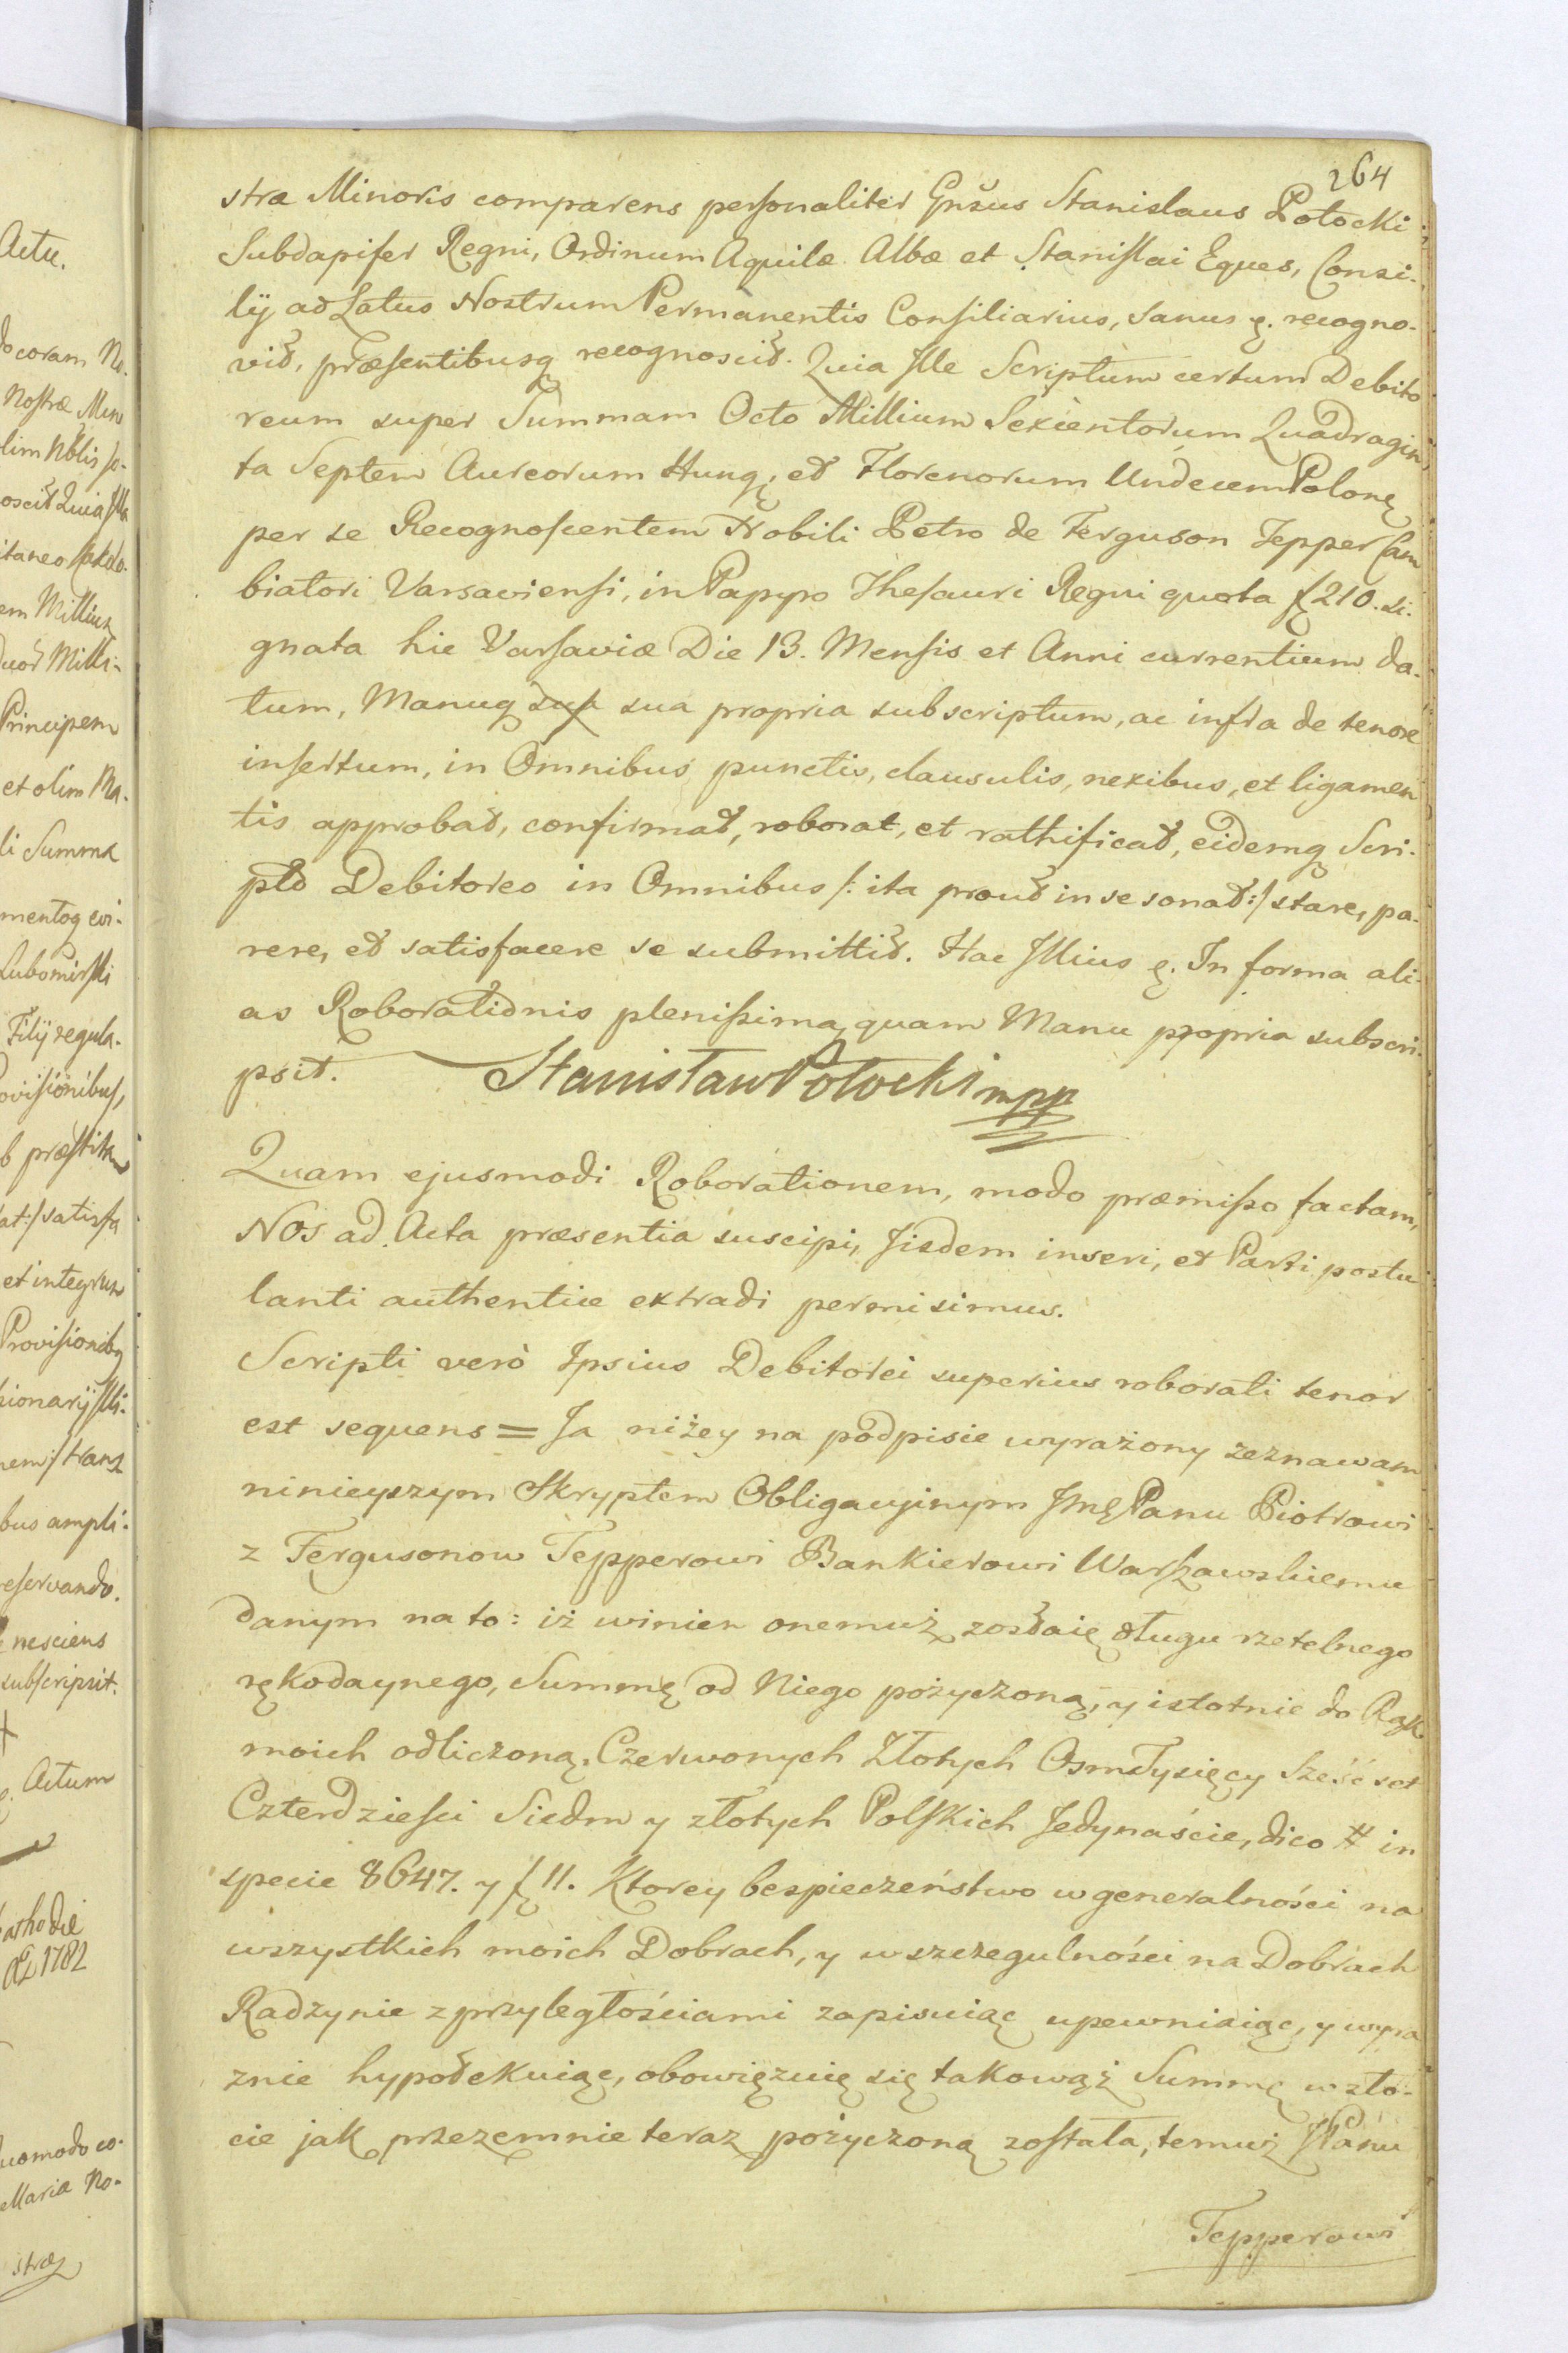 Actu.
do coram No-
Nostræ Mino
olim Nblis
oscit Quia Ille
itaneo
em Millium
Milli-
Principem
et olim Ma-
li Summa
evi-
Lubomirski
Filij regula-
ovisionibus,
b præstitam
at:/ satisfa
et integrum
Provisionibq
sionarij Illi-
nem:/ trans
bus ampli-
reservando.
nesciens
subscripsit.
Actum
hodie
1782
uomodo co-
Maria No-
stræ
264
stræ Minoris comparens personaliter Gnŝus Stanislaus Potocki
Subdapifer Regni, Ordinum Aquilæ Albæ et Stanislai Eques, Consi-
lij ad Latus Nostrum Permanentis Consiliarius, Sanus ę. recogno-
vit, præsentibusq recognoscit. Quia Ille Scriptum certum Debito
reum super Summam Octo Millium Sexcentorum Quadragin
ta Septem Aureorum Hung; et Florenorum Undecem Polonę
per se Recognoscentem Nobili Petro de Ferguson Tepper Cam
biatori Varsaviensi, in Papyro Thesauri Regni quota f 210. si-
gnata hic Varsaviæ Die 13. Mensis et Anni currentium da-
tum, Manuq sua sua propria subscriptum, ac infra de tenore
insertum, in Omnibus punctis, clausulis, nexibus, et ligamen
tis approbat, confirmat, roborat, et rathificat, eidemq Scri-
pto Debitoreo in Omnibus /: ita prout in se sonat :/ stare, pa-
rere, et satisfacere se submittit. Hac Illius ę. In forma ali-
as Roborationis plenissima, quam Manu propria subscri-
psit. Stanisław Potocki mpp
Quam ejusmodi Roborationem, modo præmisso factam,
Nos ad Acta præsentia suscipi, Iisdem inseri, et Parti postu
lanti authentice extradi permisimus.
Scripti verò Ipsius Debitorei superius roborati tenor
est sequens = Ja niżey na podpisie wyrażony zeznawam
ninieyszym Skryptem Obligacyinym JmęPanu Piotrowi
z Fergusonow Tepperowi Bankierowi Warszawskiemu
danym na to: iż winien onemuż zostaię długu rzetelnego
rękodaynego, Summę od Niego pożyczoną, y istotnie do Rąk
moich odliczoną, Czerwonych Złotych Osm Tysięcy Sześćset
Czterdzieści Siedm y złotych Polskich Jedynaście, dico # in
specie 8647. y f 11. Ktorey bespieczeństwo w generalności na
wszystkich moich Dobrach, y w szczegulności na Dobrach
Radzynie z przyległościami zapisuiąc upewniaiąc, y wyra
znie hypotekuiąc, obowięzuię się takowąż Summę w zło-
cie jak przezemnie teraz pożyczoną została, temuż JPanu
Tepperowi